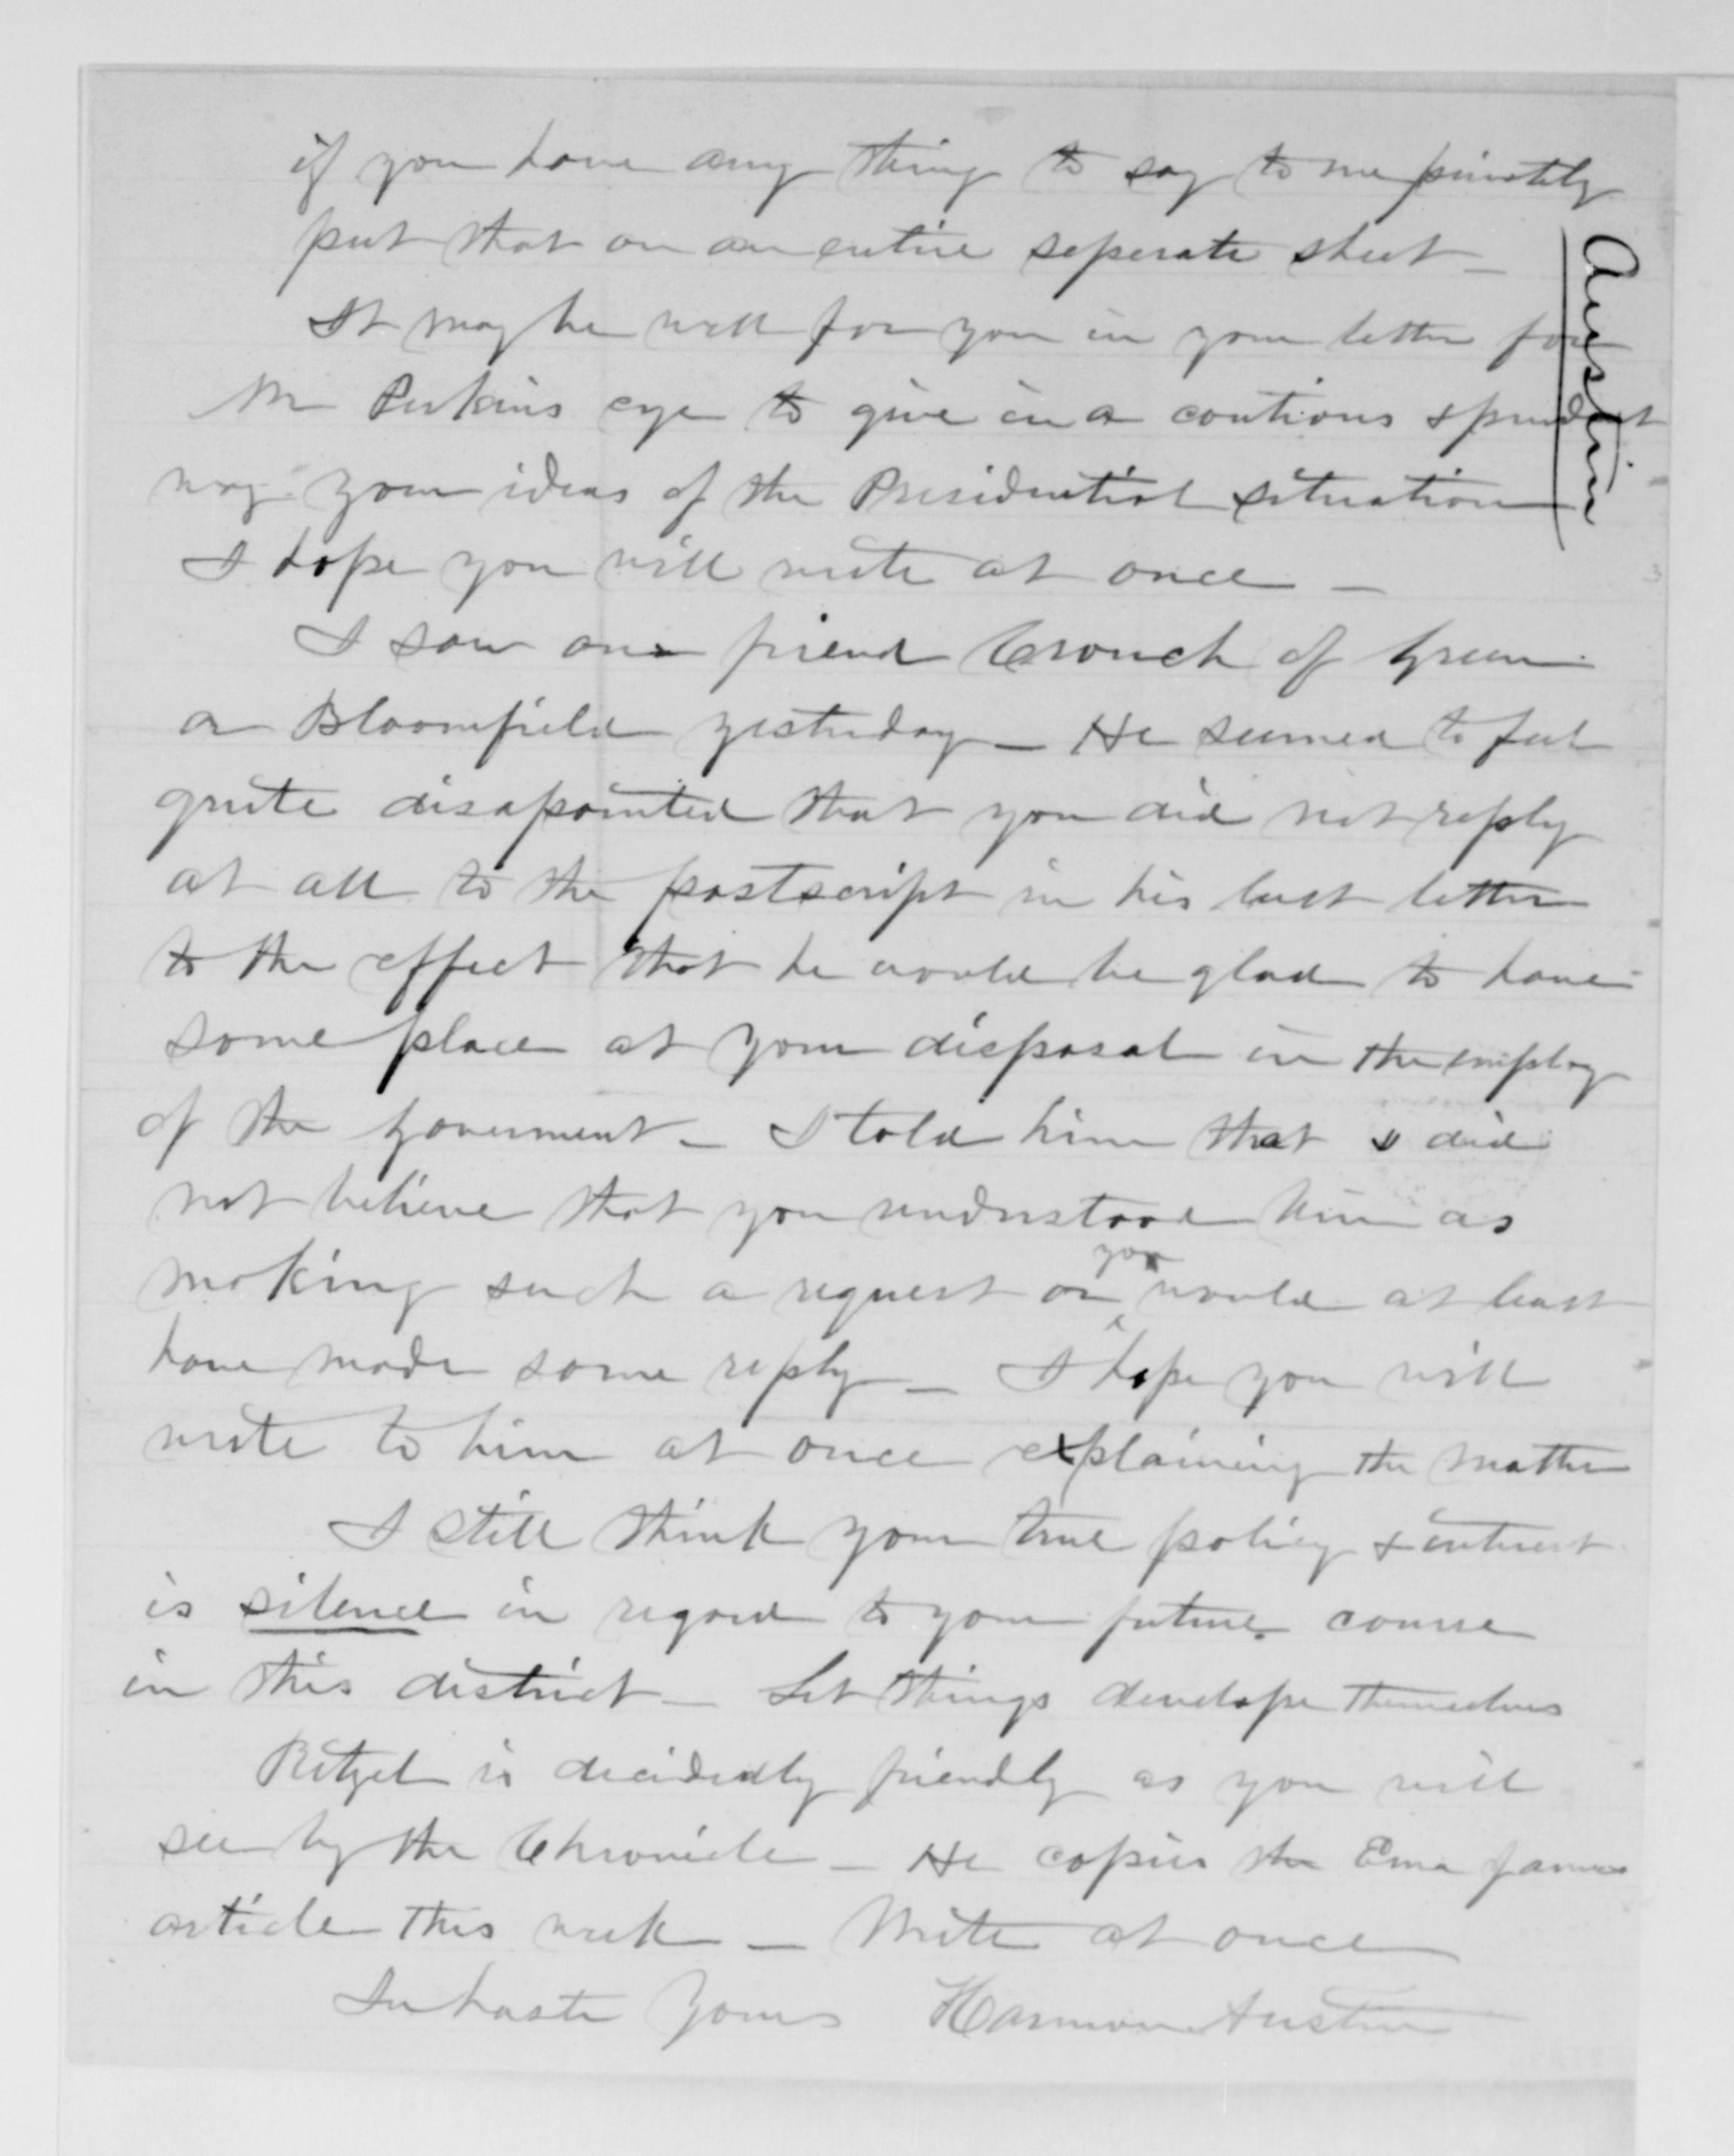 if you have any thing to say to me privately
put that on an entire seperate sheet —
It may be well for you in your letter for
Mr Perkins eye to give in a cautious & prudent
way your ideas of the Presidential situation
I hope you will write at once —
I saw our friend Crouch of Green
or Bloomfield yesterday — He seemed to feel
quite disapointed that you did not reply
at all to the postscript in his last letter
to the effect that he would be glad to have
some place at your disposal in the employ
of the Goverment — I told him that I did
not believe that you understood him as
making such a request or you would at least
have made some reply — I hope you will
write to him at once explaining the matter
I still think your true policy & interest
is silence in regard to your future course
in this district — Let things develope themselves
Ritzel is decidedly friendly as you will
see by the Chronicle — He copies the
article this week — Write at once
In haste Yours Harmon Austin
Austin